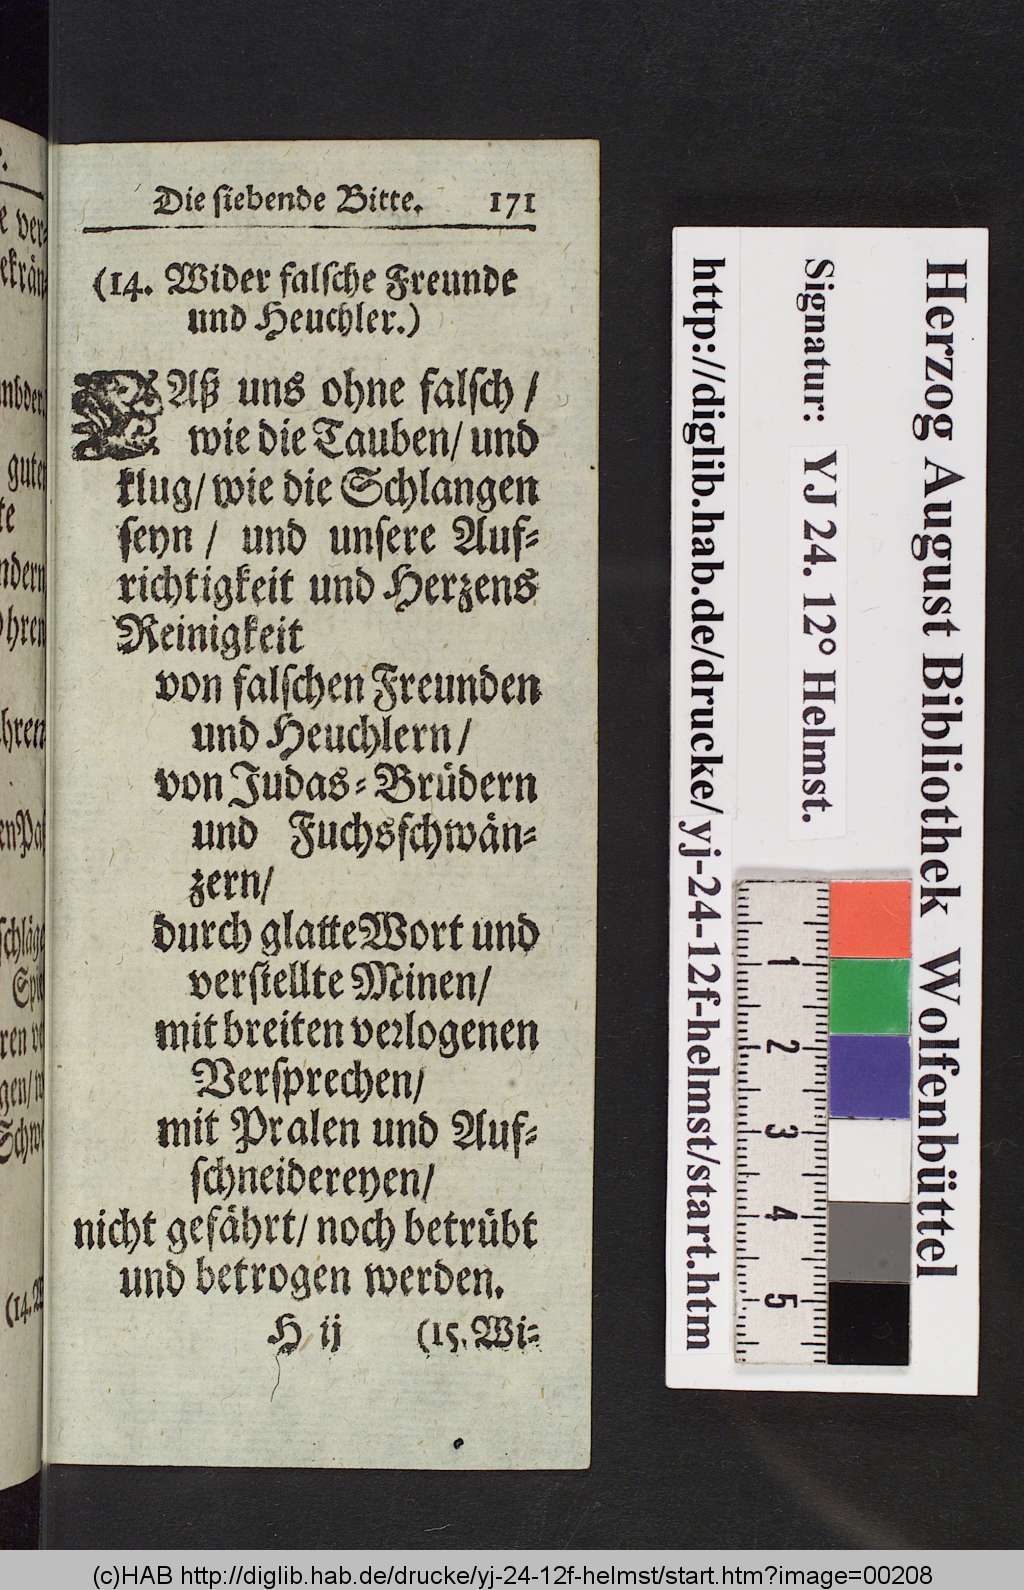 Die siebende Bitte. 171
(14. Wider falsche Freunde
und Heuchler.)
LAß uns ohne falsch /
wie die Tauben/ und
klug/ wie die Schlangen
seyn / und unsere Auf-
richtigkeit und Herzens
Reinigkeit
von falschen Freunden
und Heuchlern /
von Judas-Brüdern
und Fuchsschwän-
zern/
durch glatte Wort und
verstellte Minen/
mit breiten verlogenen
Versprechen/
mit Pralen und Auf-
schneidereyen/
nicht gefährt/ noch betrübt
und betrogen werden.
H ij (15. Wi-
Herzog August Bibliothek Wolfenbüttel
Signatur: YJ 24. 12° Helmst.
http://diglib.hab.de/drucke/yj-24-12f-helmst/start.htm
1
2
3
4
5
guten
ndern
Ohren
hren
(14.
(c)HAB http://diglib.hab.de/drucke/yj-24-12f-helmst/start.htm?image=00208